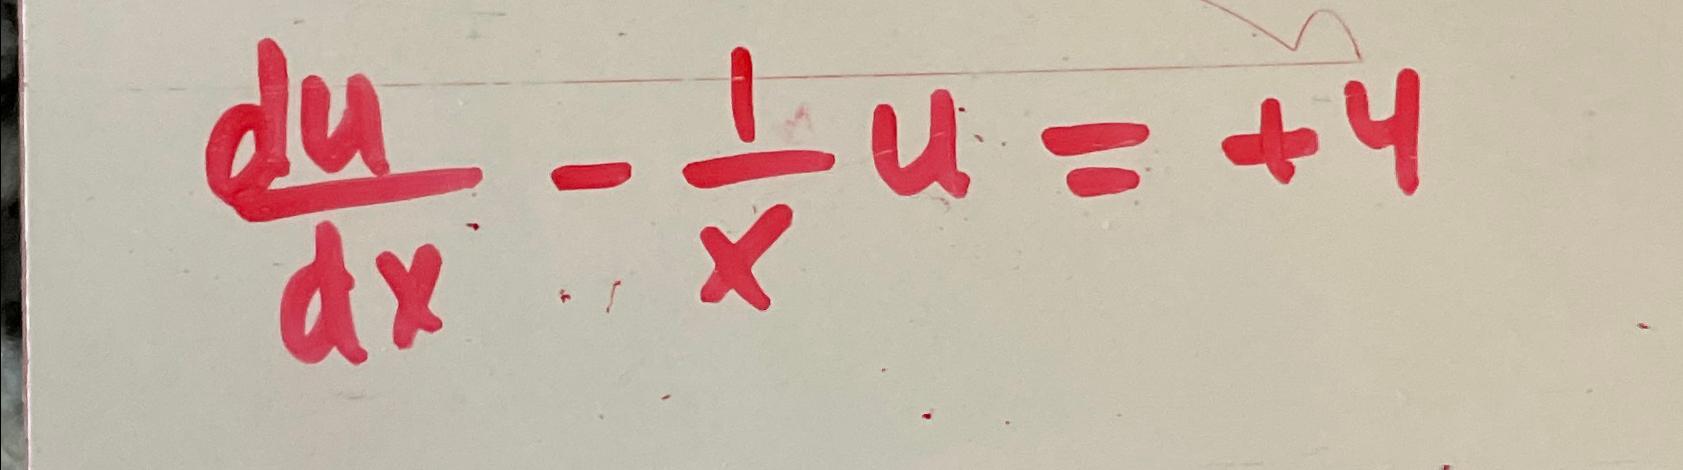 du/dx - 1/x u = +4